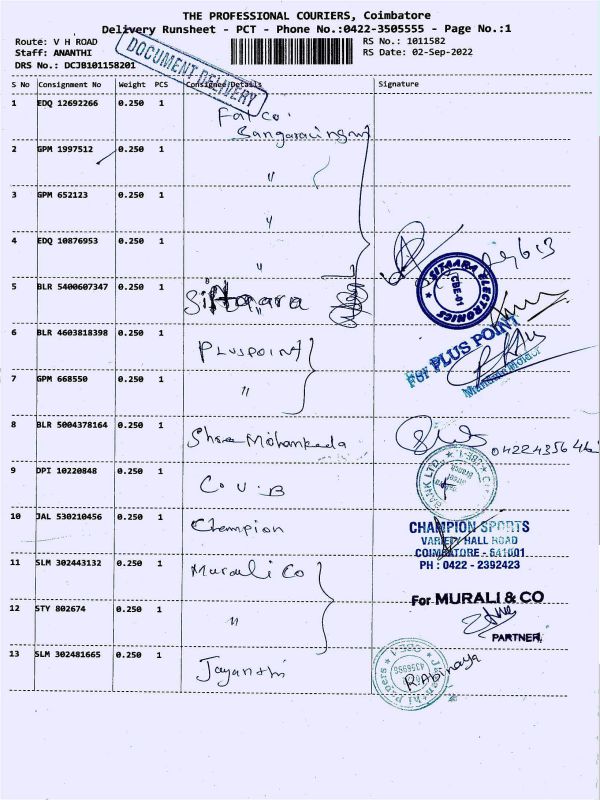 THE PROFESSIONAL COURIERS, Coimbatore
Delivery Runsheet - PCT - Phone No.:0422-3505555 - Page No.:1
Route: V H ROAD
RS No.: 1011582
Staff: ANANTHI
RS Date: 02-Sep-2022
DRS No.: DCJB101158201
DOCUMENT DELIVERY
S No Consignment No Weight PCS Consignee/Details Signature
1 EDQ 12692266 0.250 1
2 GPM 1997512 0.250 1 "
3 GPM 652123 0.250 1 "
4 EDQ 10876953 0.250 1 "
5 BLR 5400607347 0.250 1 Sittaara
SITAARA ELECTRONICS
CBE-01
6 BLR 4603818398 0.250 1 PLUSPOINT
For PLUS POINT
7 GPM 668550 0.250 1 "
8 BLR 5004378164 0.250 1 Shree
9 DPI 10220848 0.250 1 C.U.B
BANK LTD.
10 JAL 530210456 0.250 1 Champion
CHAMPION SPORTS
VARIETY HALL ROAD
COIMBATORE - 641001
PH : 0422 - 2392423
11 SLM 302443132 0.250 1 Murali Co
For MURALI & CO
12 STY 802674 0.250 1 "
PARTNER,
13 SLM 302481665 0.250 1 Jayanthi
R.Abinaya